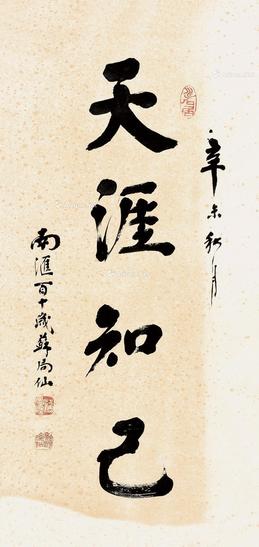 辛未秋月
天涯知己
南滙百十歲蘇局仙